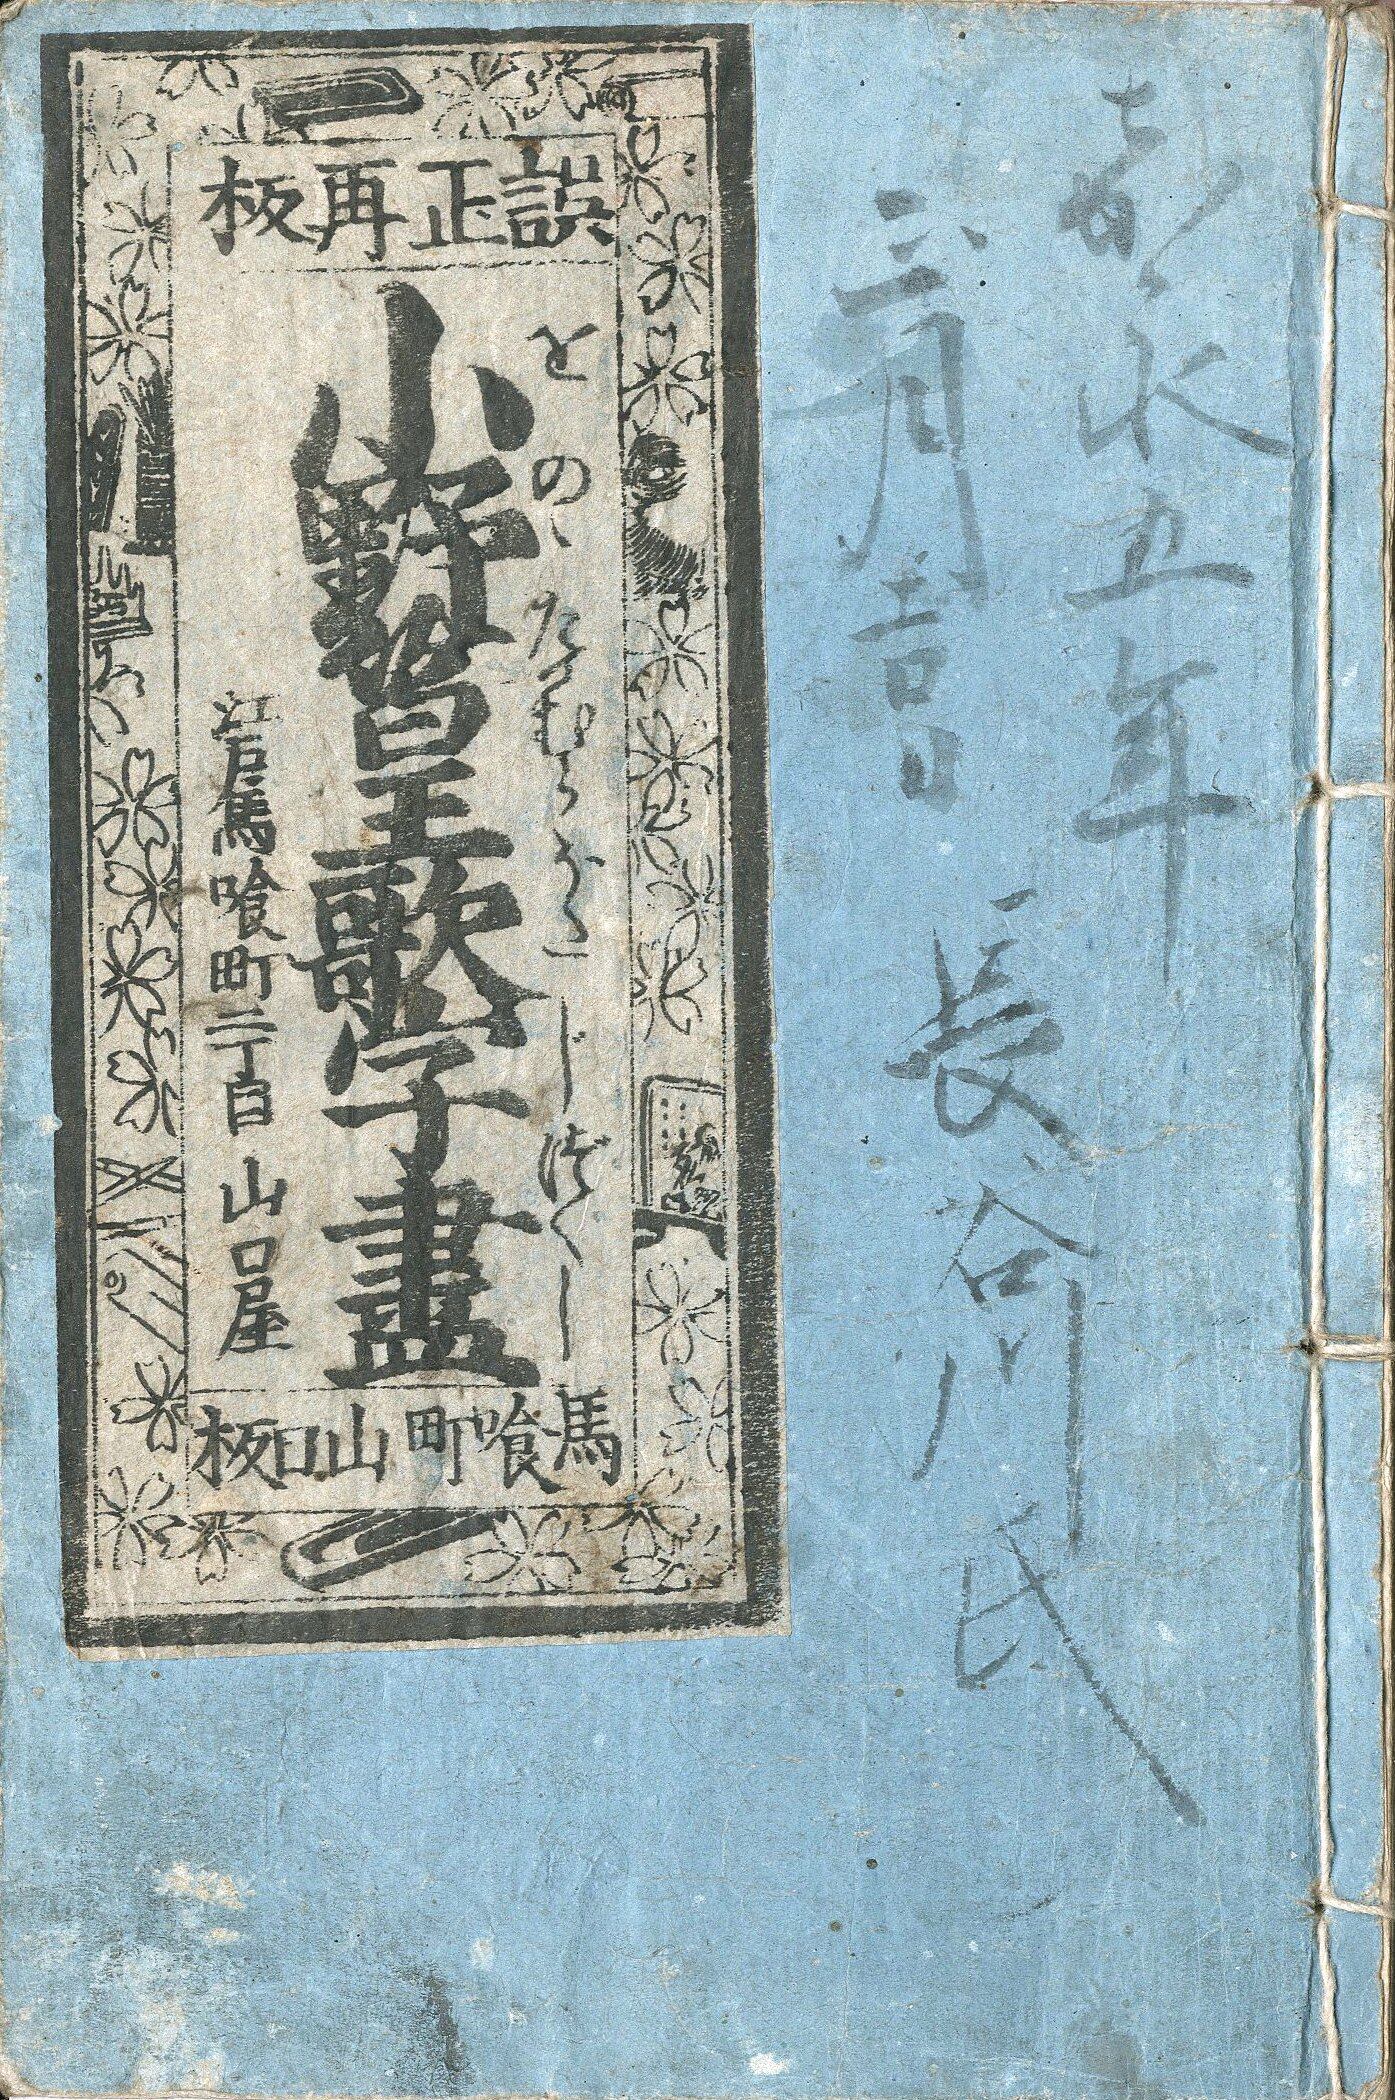 嘉永五年
月吉日
長谷川氏
誤正再板
をのゝたかむらうたじづくし
小野篁歌字盡
江戸馬喰町二丁目 山口屋
馬喰町山口板